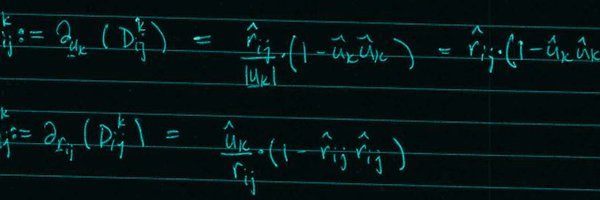 ᵏ_ij := ∂_u̲k (D^k_ij) = r̂_ij / |u̲_k| · (1 − û_k û_k) = r̂_ij · (1 − û_k û_k
ᵏ_ij := ∂_r̲ij (D^k_ij) = û_k / r_ij · (1 − r̂_ij r̂_ij)